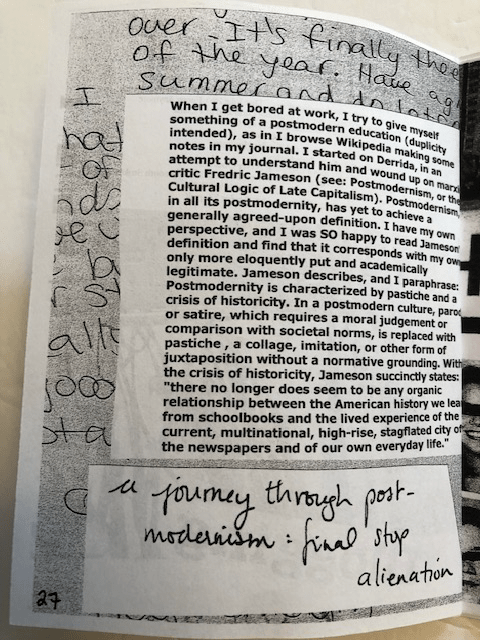 over. It's finally the
of the year. Have a
Summer and do lots
I
hat
of
nds
be
St
alle
good
sta
When I get bored at work, I try to give myself
something of a postmodern education (duplicity
intended), as in I browse Wikipedia making some
notes in my journal. I started on Derrida, in an
attempt to understand him and wound up on marxi
critic Fredric Jameson (see: Postmodernism, or the
Cultural Logic of Late Capitalism). Postmodernism,
in all its postmodernity, has yet to achieve a
generally agreed-upon definition. I have my own
perspective, and I was SO happy to read Jameson'
definition and find that it corresponds with my own
only more eloquently put and academically
legitimate. Jameson describes, and I paraphrase:
Postmodernity is characterized by pastiche and a
crisis of historicity. In a postmodern culture, parod
or satire, which requires a moral judgement or
comparison with societal norms, is replaced with
pastiche , a collage, imitation, or other form of
juxtaposition without a normative grounding. With
the crisis of historicity, Jameson succinctly states:
"there no longer does seem to be any organic
relationship between the American history we lea
from schoolbooks and the lived experience of the
current, multinational, high-rise, stagflated city of
the newspapers and of our own everyday life."
a journey through post-
modernism : final stop
alienation
27